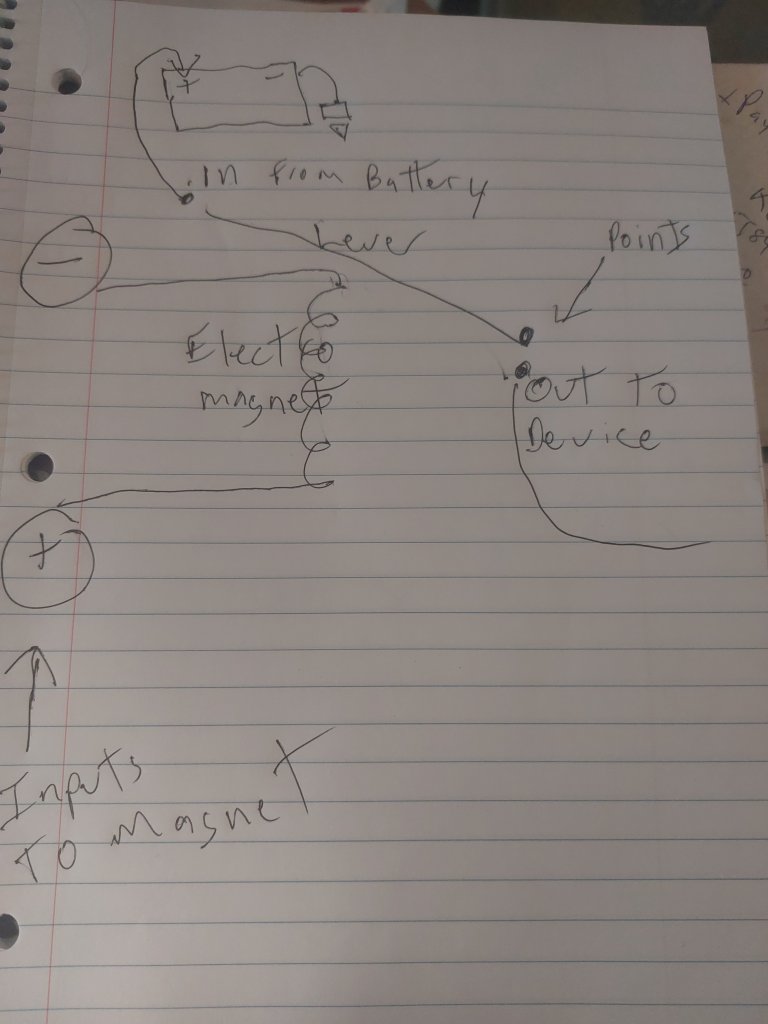 + -
In From Battery
Lever
Points
-
Electro
magnet
Out To
Device
+
Inputs
To Magnet